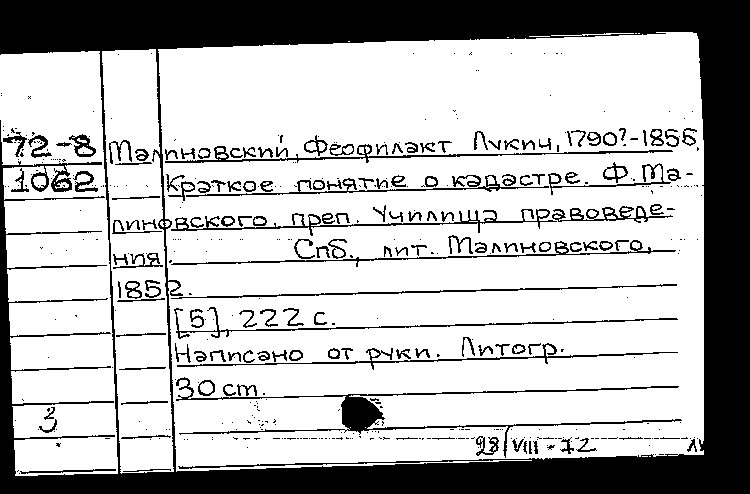 72-8 Малиновский, Феофилакт Лукич, 1790?-1856.
1062 Краткое понятие о кадастре. Ф. Ма-
линовского, преп. Училища правоведе-
ния. Спб., лит. Малиновского,
1852.
[5], 222 с.
Написано от руки. Литогр.
30 cm.
3
28/VIII-72